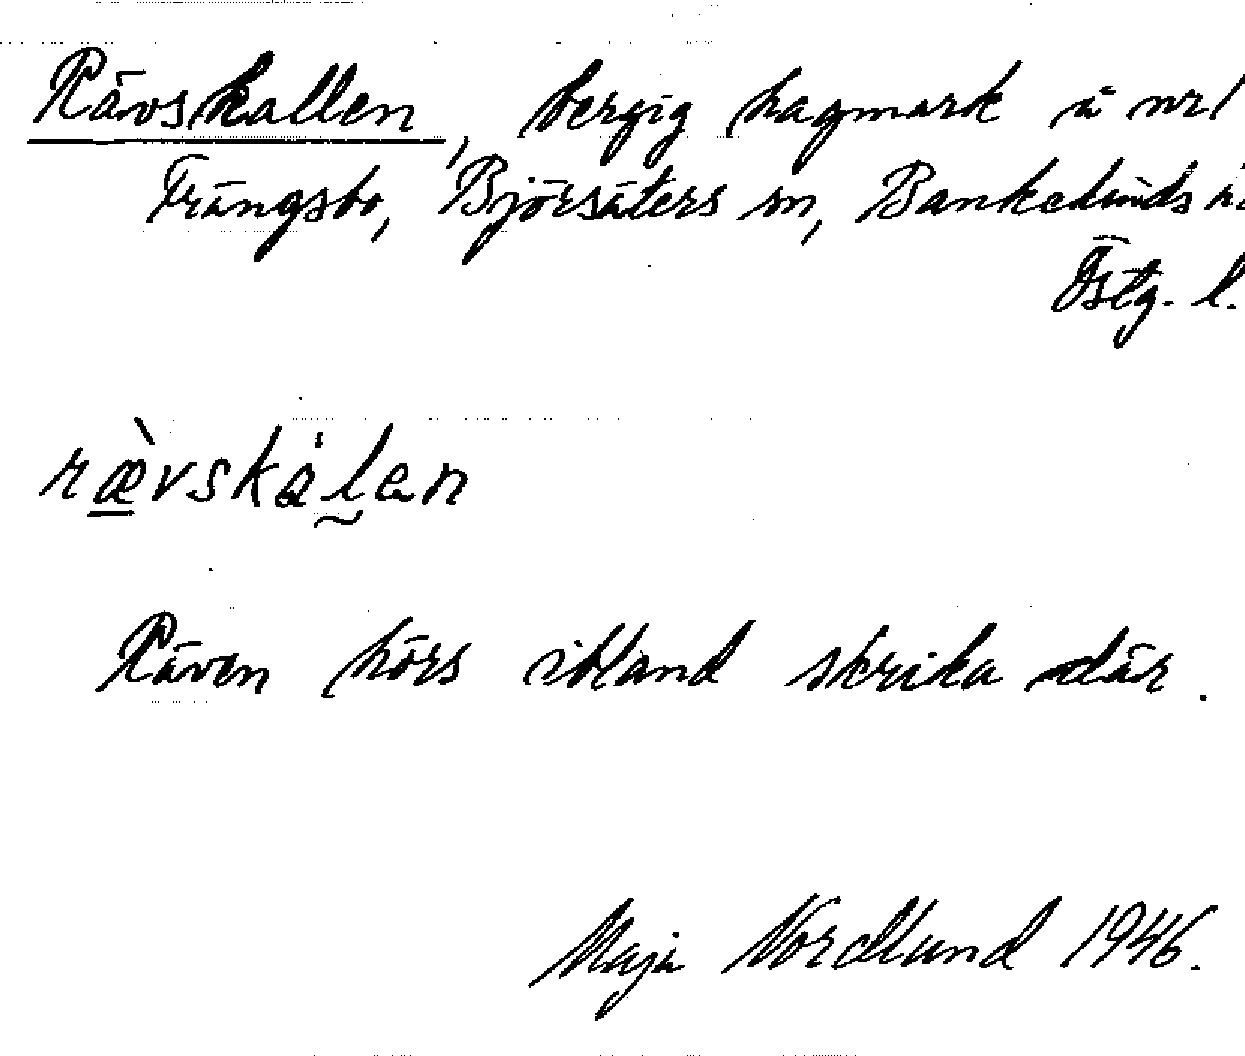 Rävskallen, bergig hagmark å nr 1
Trängsbo, Björsäters sn, Bankekinds
Östg. l.
ræ̀vskal̰en
Räven hörs ibland skrika där.
Maja Nordlund 1946.